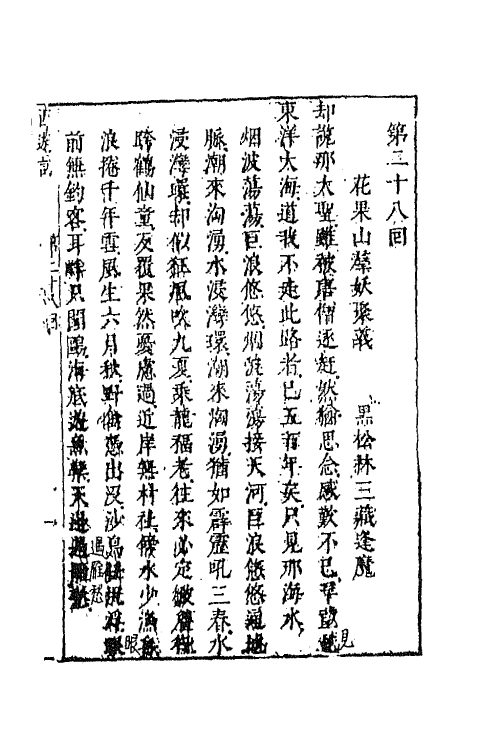 第二十八回
花果山羣妖聚義 黑松林三藏逢魔
却說那大聖雖被唐僧逐赶然猶思念感歎不已早望見
東洋大海道我不走此路者已五百年矣只見那海水
烟波蕩蕩巨浪悠悠烟波蕩蕩接天河巨浪悠悠通地
脉潮來洶湧水浸灣環潮來洶湧猶如霹靂吼三春水
浸灣環却似狂風吹九夏乘龍福老往來必定皺眉行
跨鶴仙童反覆果然憂慮過近岸無村社傍水少漁舟
浪捲千年雪風生六月秋野禽憑出没沙鳥任沉浮眼
前無釣客耳畔只聞鷗海底遊魚樂天邊過雁愁
西遊記
第二十八回
一
見
眼
過雁愁